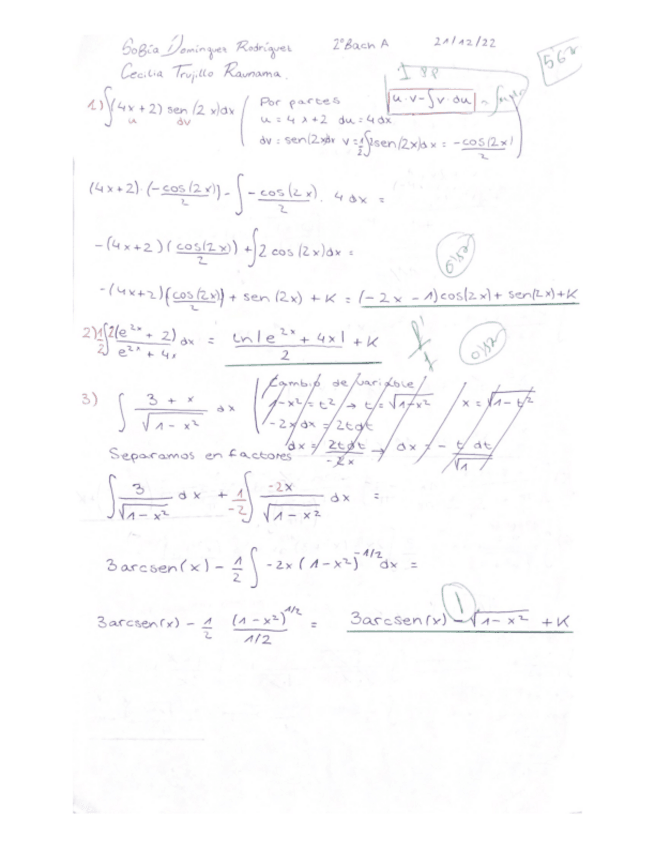 Sofía Domínguez Rodríguez 2ºBach A 21/12/22
Cecilia Trujillo
1) ∫(4x+2) sen(2x)dx Por partes u·v-∫v du
u dv u = 4x+2 du = 4dx
dv = sen(2x)dx v = 1/2∫2sen(2x)dx = -cos(2x)/2
(4x+2)·(-cos(2x)/2) - ∫ -cos(2x)/2 · 4dx =
-(4x+2)(cos(2x)/2) + ∫2 cos(2x)dx =
-(4x+2)(cos(2x)/2) + sen(2x) + K = (-2x-1)cos(2x) + sen(2x) + K
2) 1/2 ∫ 2(e^2x + 2)/(e^2x + 4x) dx = Ln|e^2x + 4x|/2 + K
3) ∫ (3 + x)/√(1-x²) dx Cambio de variable
1-x² = t² → t = √(1-x²) x = √(1-t²)
-2xdx = 2tdt
dx = 2tdt/-2x → dx = - t dt/√1
Separamos en factores
∫ 3/√(1-x²) dx + 1/-2 ∫ -2x/√(1-x²) dx =
3arcsen(x) - 1/2 ∫ -2x(1-x²)^-1/2 dx =
3arcsen(x) - 1/2 (1-x²)^1/2 / 1/2 = 3arcsen(x) - √(1-x²) + K
1